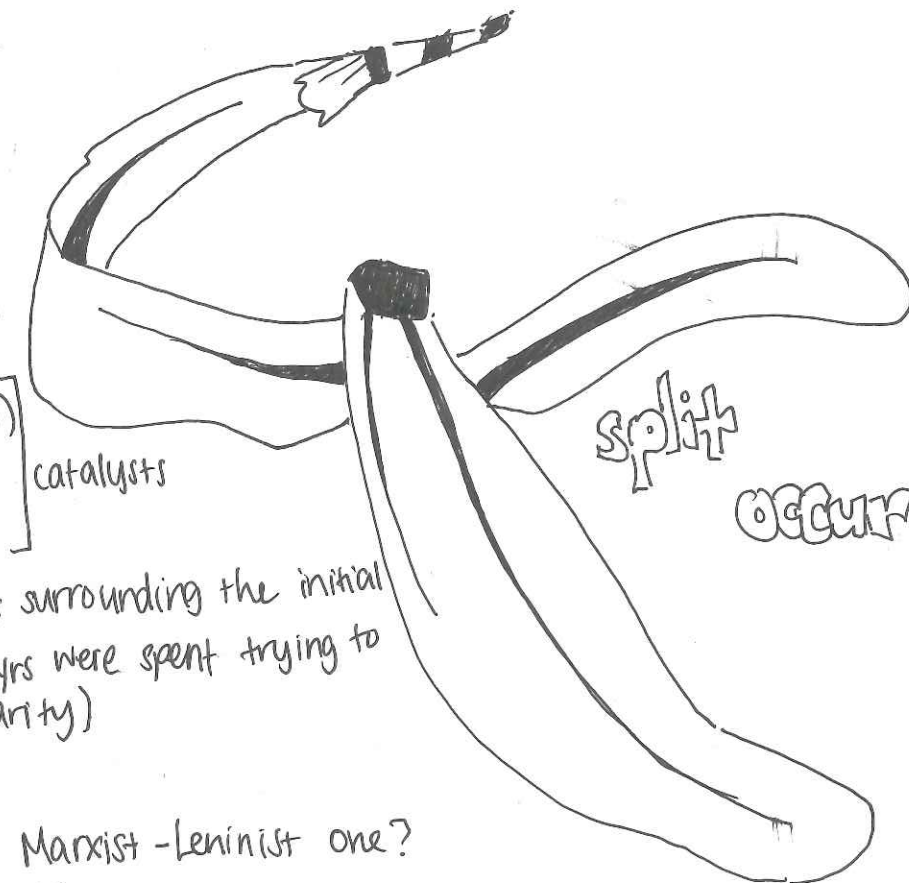 catalysts
split
occur
surrounding the initial
yrs were spent trying to
Marxist-Leninist one?